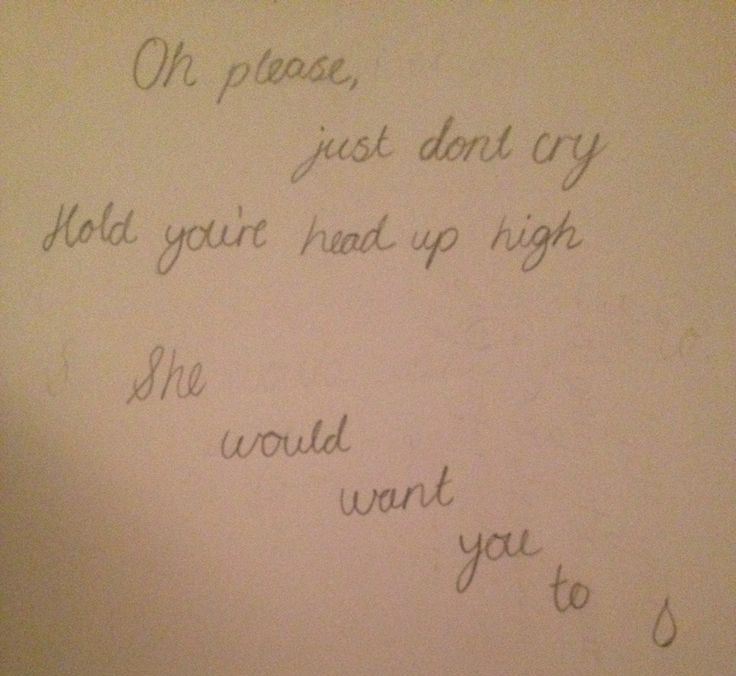 Oh please,
just dont cry
Hold you're head up high
She
would
want
you
to